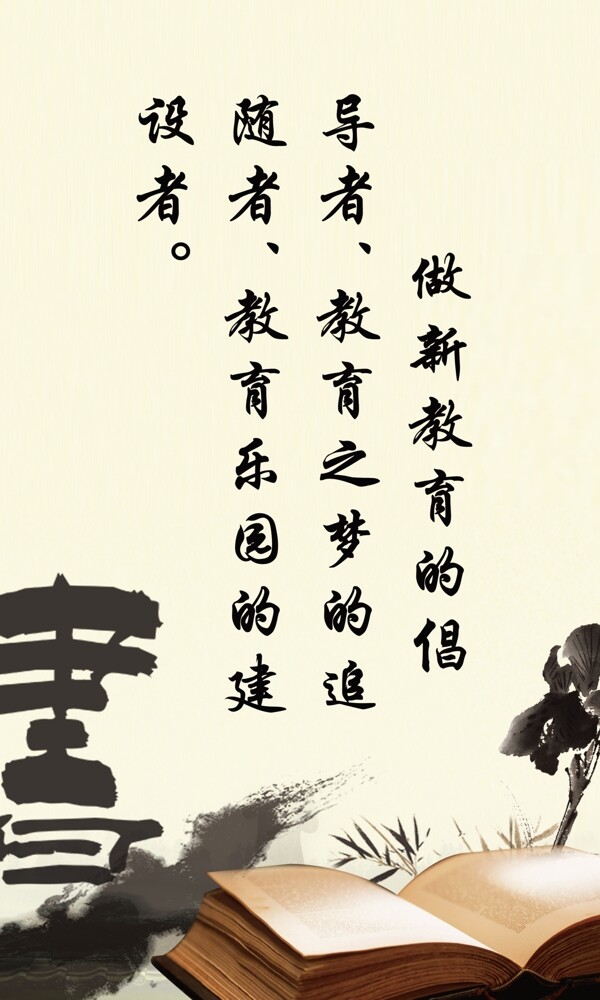 做新教育的倡
导者、教育之梦的追
随者、教育乐园的建
设者。
書